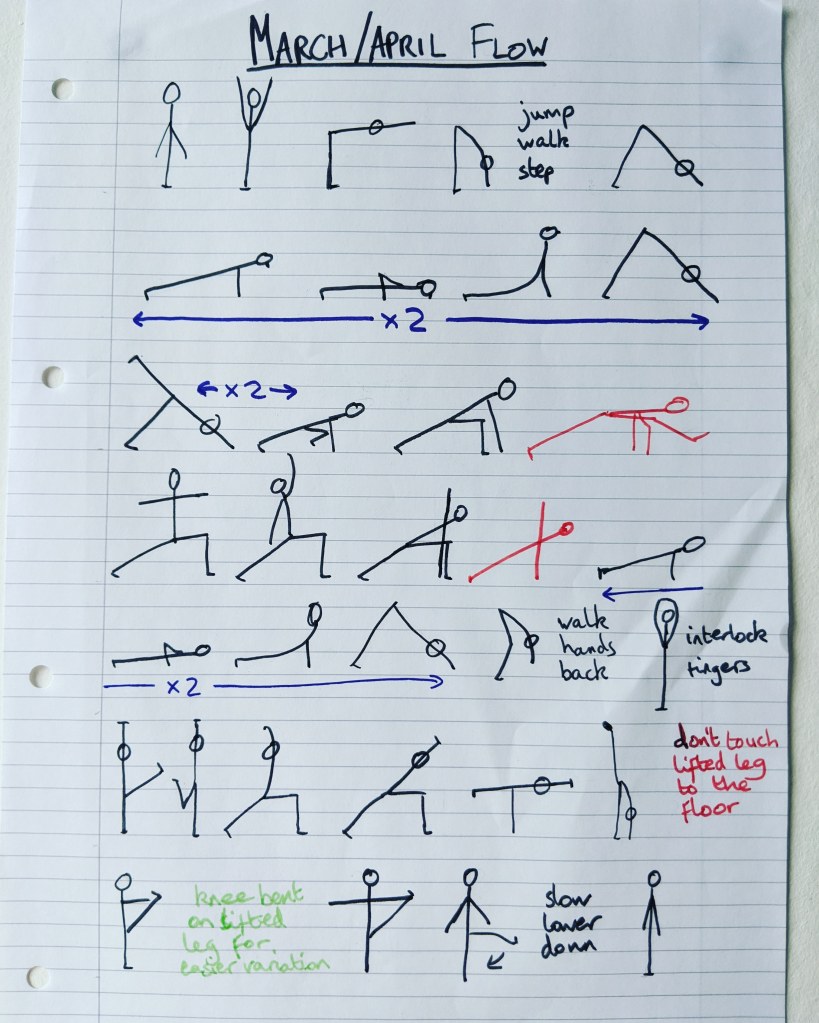 MARCH/APRIL FLOW
jump
walk
step
x2
x2
walk
hands
back
interlock
fingers
x2
don't touch
lifted leg
to the
floor
knee bent
on lifted
leg for
easier variation
slow
lower
down